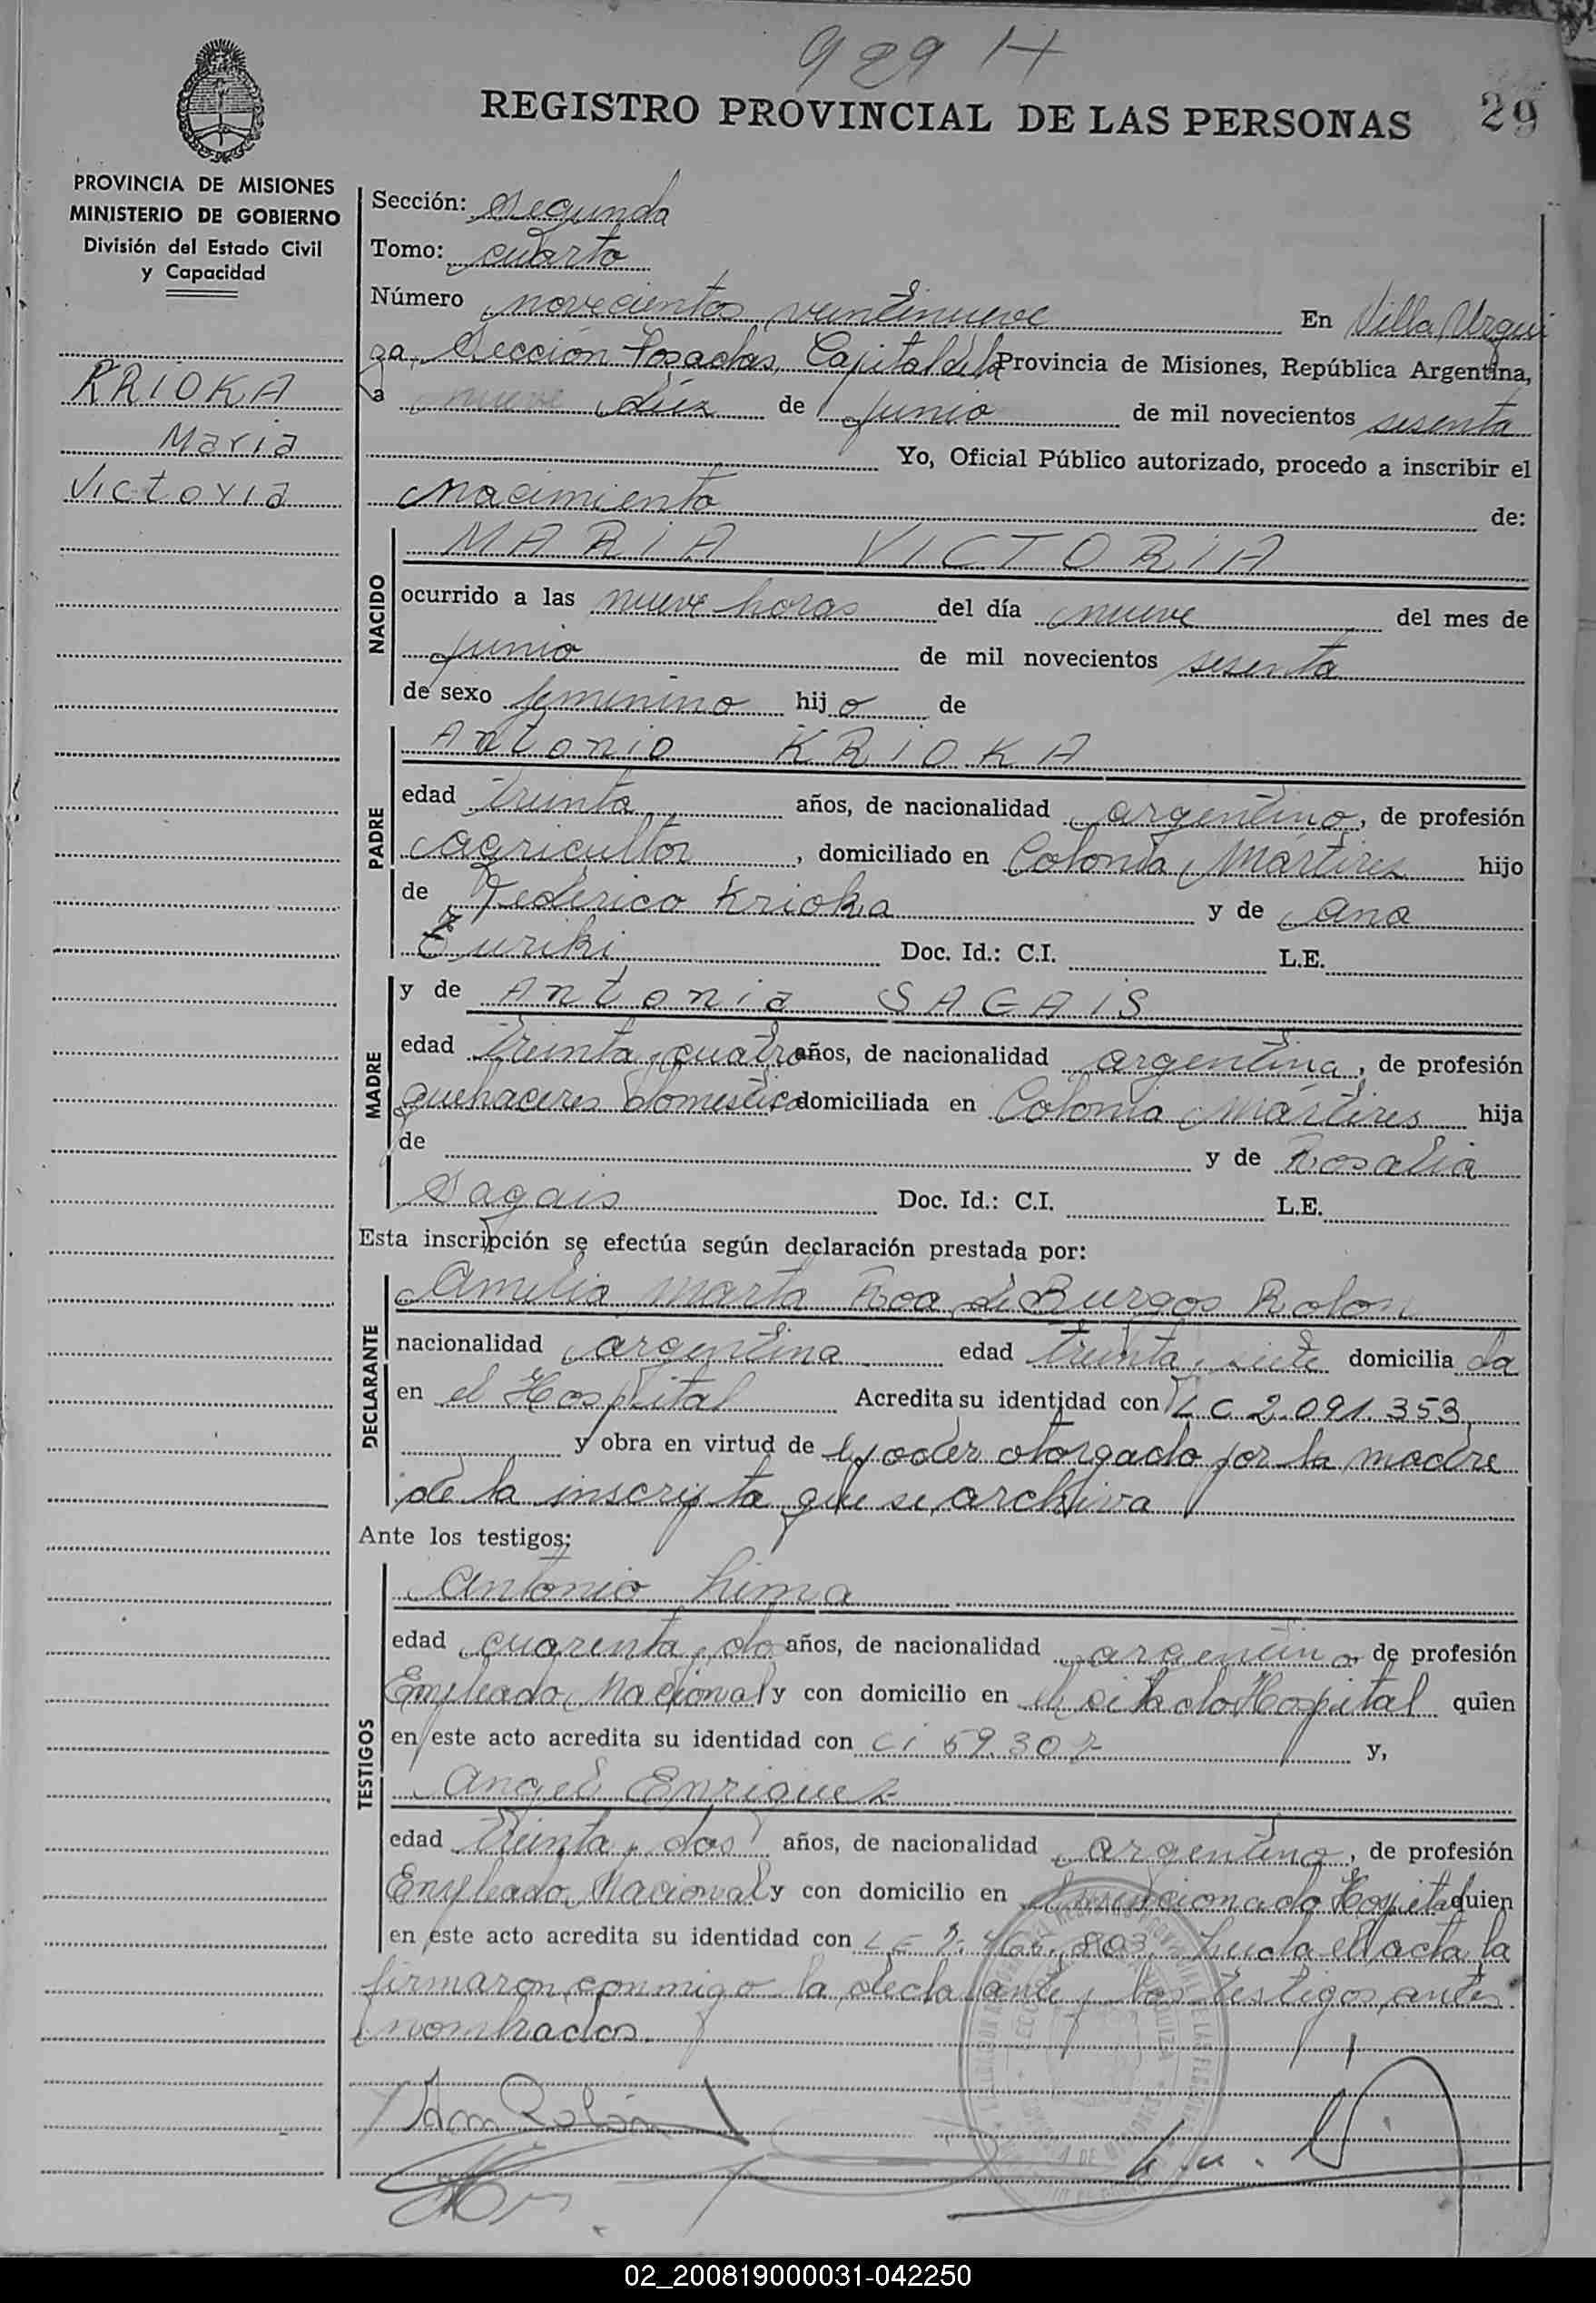 929 H
REGISTRO PROVINCIAL DE LAS PERSONAS
29
PROVINCIA DE MISIONES
MINISTERIO DE GOBIERNO
División del Estado Civil
y Capacidad
KRIOKA
Maria
Victoria
Sección: Segunda
Tomo: cuarto
Número novecientos veintinueve En Villa Urqui
za, Sección Posadas, Capital de la Provincia de Misiones, República Argentina,
a diez de junio de mil novecientos sesenta
Yo, Oficial Público autorizado, procedo a inscribir el
nacimiento de:
NACIDO
MARIA VICTORIA
ocurrido a las nueve horas del día nueve del mes de
junio de mil novecientos sesenta
de sexo femenino hij a de
PADRE
Antonio KRIOKA
edad treinta años, de nacionalidad argentino, de profesión
agricultor, domiciliado en Colonia Mártires hijo
de Federico Krioka y de Ana
Zuriki Doc. Id.: C.I. L.E.
MADRE
y de Antonia SAGAIS
edad treinta y cuatro años, de nacionalidad argentina, de profesión
quehaceres domesticos domiciliada en Colonia Mártires hija
de y de Rosalia
Sagais Doc. Id.: C.I. L.E.
Esta inscripción se efectúa según declaración prestada por:
DECLARANTE
Amelia Marta Roa de Burgos Rolon
nacionalidad argentina edad treinta y siete domicilia da
en el Hospital Acredita su identidad con L C 2.091.353
y obra en virtud de poder otorgado por la madre
de la inscripta que se archiva
Ante los testigos:
TESTIGOS
Antonio Lima
edad cuarenta y do años, de nacionalidad argentino de profesión
Empleado Nacional y con domicilio en el citado Hospital quien
en este acto acredita su identidad con Ci 59.307 y,
Angel Enriquez
edad treinta y dos años, de nacionalidad argentino, de profesión
Empleado Nacional y con domicilio en mencionado Hospital quien
en este acto acredita su identidad con LE 803. Leida el acta la
firmaron conmigo la declarante y los testigos antes
nombrados.
02_200819000031-042250